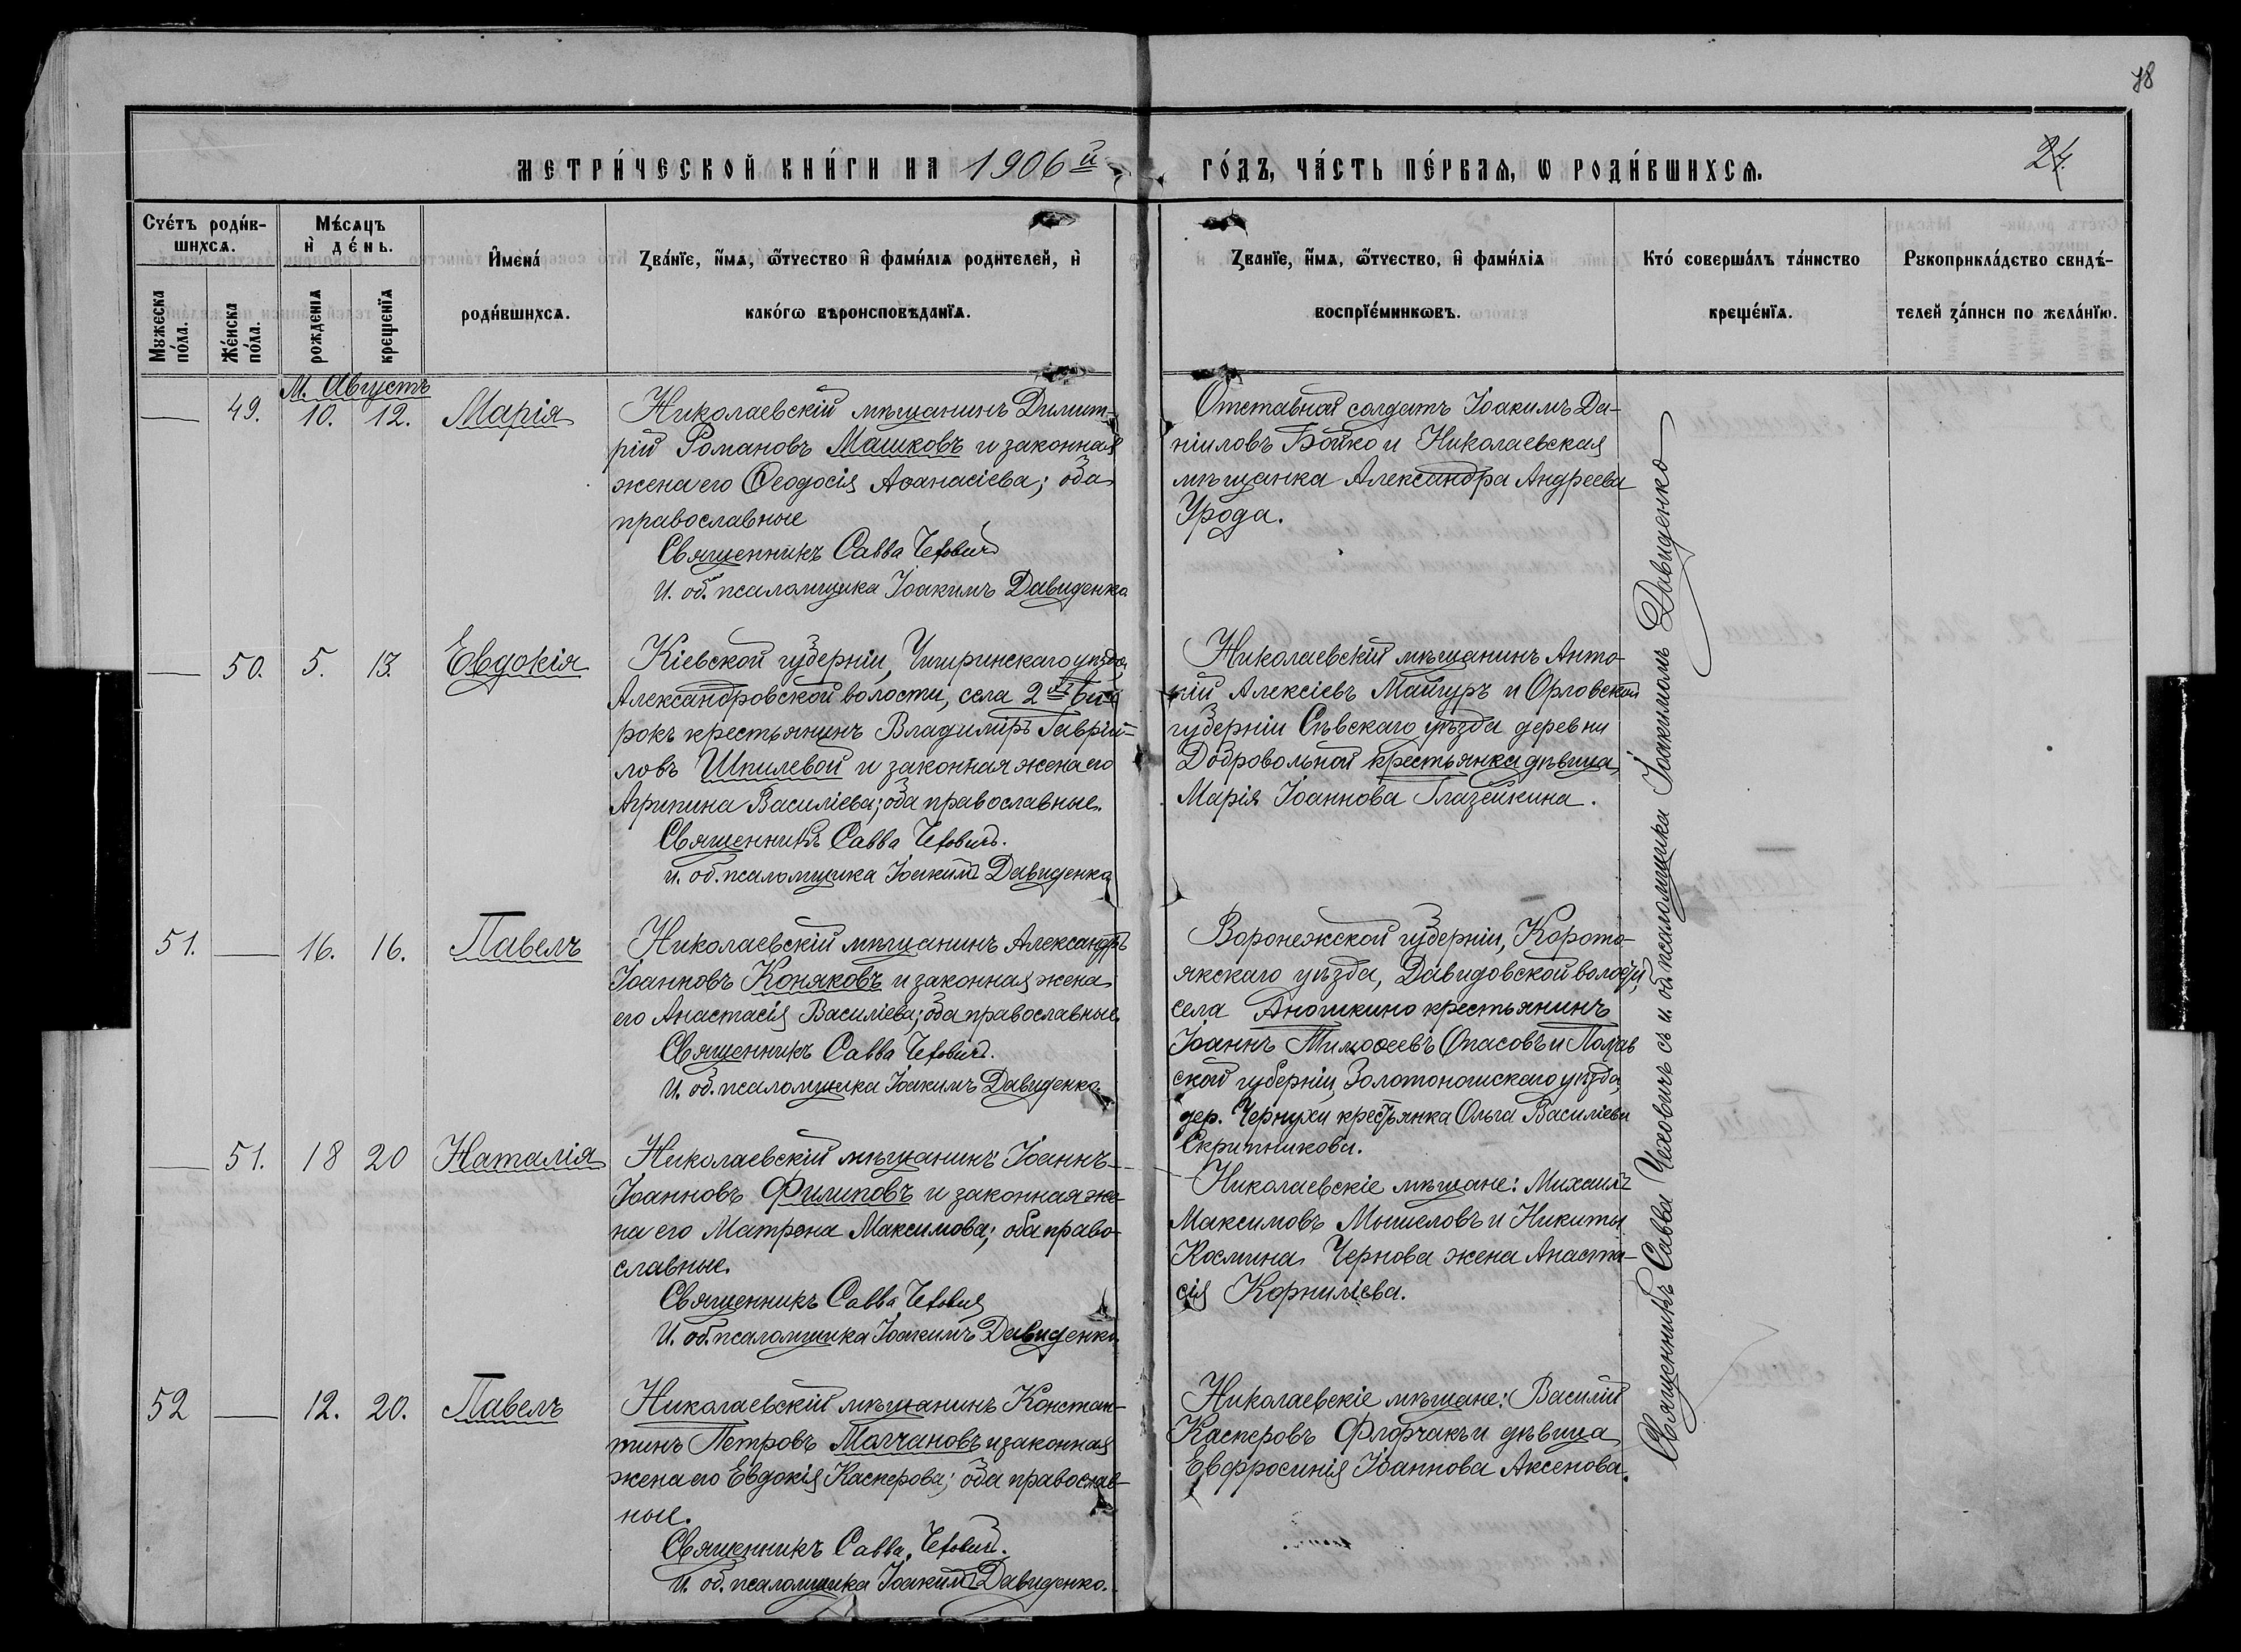 18
МЕТРИ́ЧЕСКОЙ КНИ́ГИ НА 1906й
ГО́ДЪ, ЧА́СТЬ ПЕ́РВАЯ, Ѡ РОДИ́ВШИХСЯ.
24.
Счéтъ роди́в-
шихся.
Мѣ́сяцъ
и҆ де́нь.
Мужеска
по́ла.
Же́нска
по́ла.
рожденія
крещенїя
И҆мена́
роди́вшихся.
Зва́нїе, и҆́мя, ѻ҆́тчество и҆ фами́лїя родителей, и҆
како́гѡ вѣроисповѣданїя.
Званїе, и҆́мя, ѻ҆́тчество, и҆ фами́лїя
воспрїе́мникѡвъ.
Кто́ соверша́лъ та́инство
креще́нїя.
Рукоприкла́дство свидѣ́-
телей за́писи по жела́нїю.
М. Августъ
— 49. 10. 12. Марія
Николаевскій мѣщанинъ Димит-
рій Романовъ Машковъ и законная
жена его Ѳеодосія Аѳанасіева; оба
православные
Священникъ Савва Чехович
И. об. псаломщика Іоакимъ Давиденко
Отставной солдатъ Іоакимъ Да-
ніиловъ Бойко и Николаевская
мѣщанка Александра Андреева
Урода.
— 50. 5. 13. Евдокія
Кіевской губерніи, Чигиринскаго уѣзда,
Александровской волости, села 2хъ Би-
рокъ крестьянинъ Владиміръ Гавріи-
ловъ Шпилевой и законная жена его
Агрипина Василіева; оба православные.
Священникъ Савва Чехович.
и. об. псаломщика Іоакимъ Давиденко
Николаевскій мѣщанинъ Анто-
ній Алексіевъ Майгуръ и Орловской
губерніи Сѣвскаго уѣзда деревни
Добровольной крестьянка дѣвица
Марія Іоаннова Глазейкина.
51. — 16. 16. Павелъ
Николаевскій мѣщанинъ Александръ
Іоанновъ Коняковъ и законная жена
его Анастасія Василіева; оба православные.
Священникъ Савва Чехович.
И. об. псаломщика Іоакимъ Давиденко
Воронежской губерніи, Корото-
якскаго уѣзда, Давидовской волости,
села Аношкино крестьянинъ
Іоаннъ Тимоѳеевъ Опасовъ и Полтав
ской губерніи Золотоношскаго уѣзда,
дер. Чернухи крестьянка Ольга Василіева
Скрипникова.
— 51. 18 20 Наталія
Николаевскій мѣщанинъ Іоаннъ
Іоанновъ Филиповъ и законная же-
на его Матрона Максимова; оба право-
славные.
Священникъ Савва Чехович
И. об. псаломщика Іоакимъ Давиденко
Николаевскіе мѣщане: Михаилъ
Максимовъ Мышеловъ и Никиты
Космина Чернова жена Анаста-
сія Корниліева.
52 — 12. 20. Павелъ
Николаевскій мѣщанинъ Констан-
тинъ Петровъ Молчановъ и законная
жена его Евдокія Касперова; оба православ-
ные.
Священникъ Савва Чехович.
и. об. псаломщика Іоакимъ Давиденко.
Николаевскіе мѣщане: Василій
Касперовъ Флорчакъ и дѣвица
Евфросинія Іоаннова Аксенова.
Священникъ Савва Чеховичъ съ и. об. псаломщика Іоакимомъ Давиденко